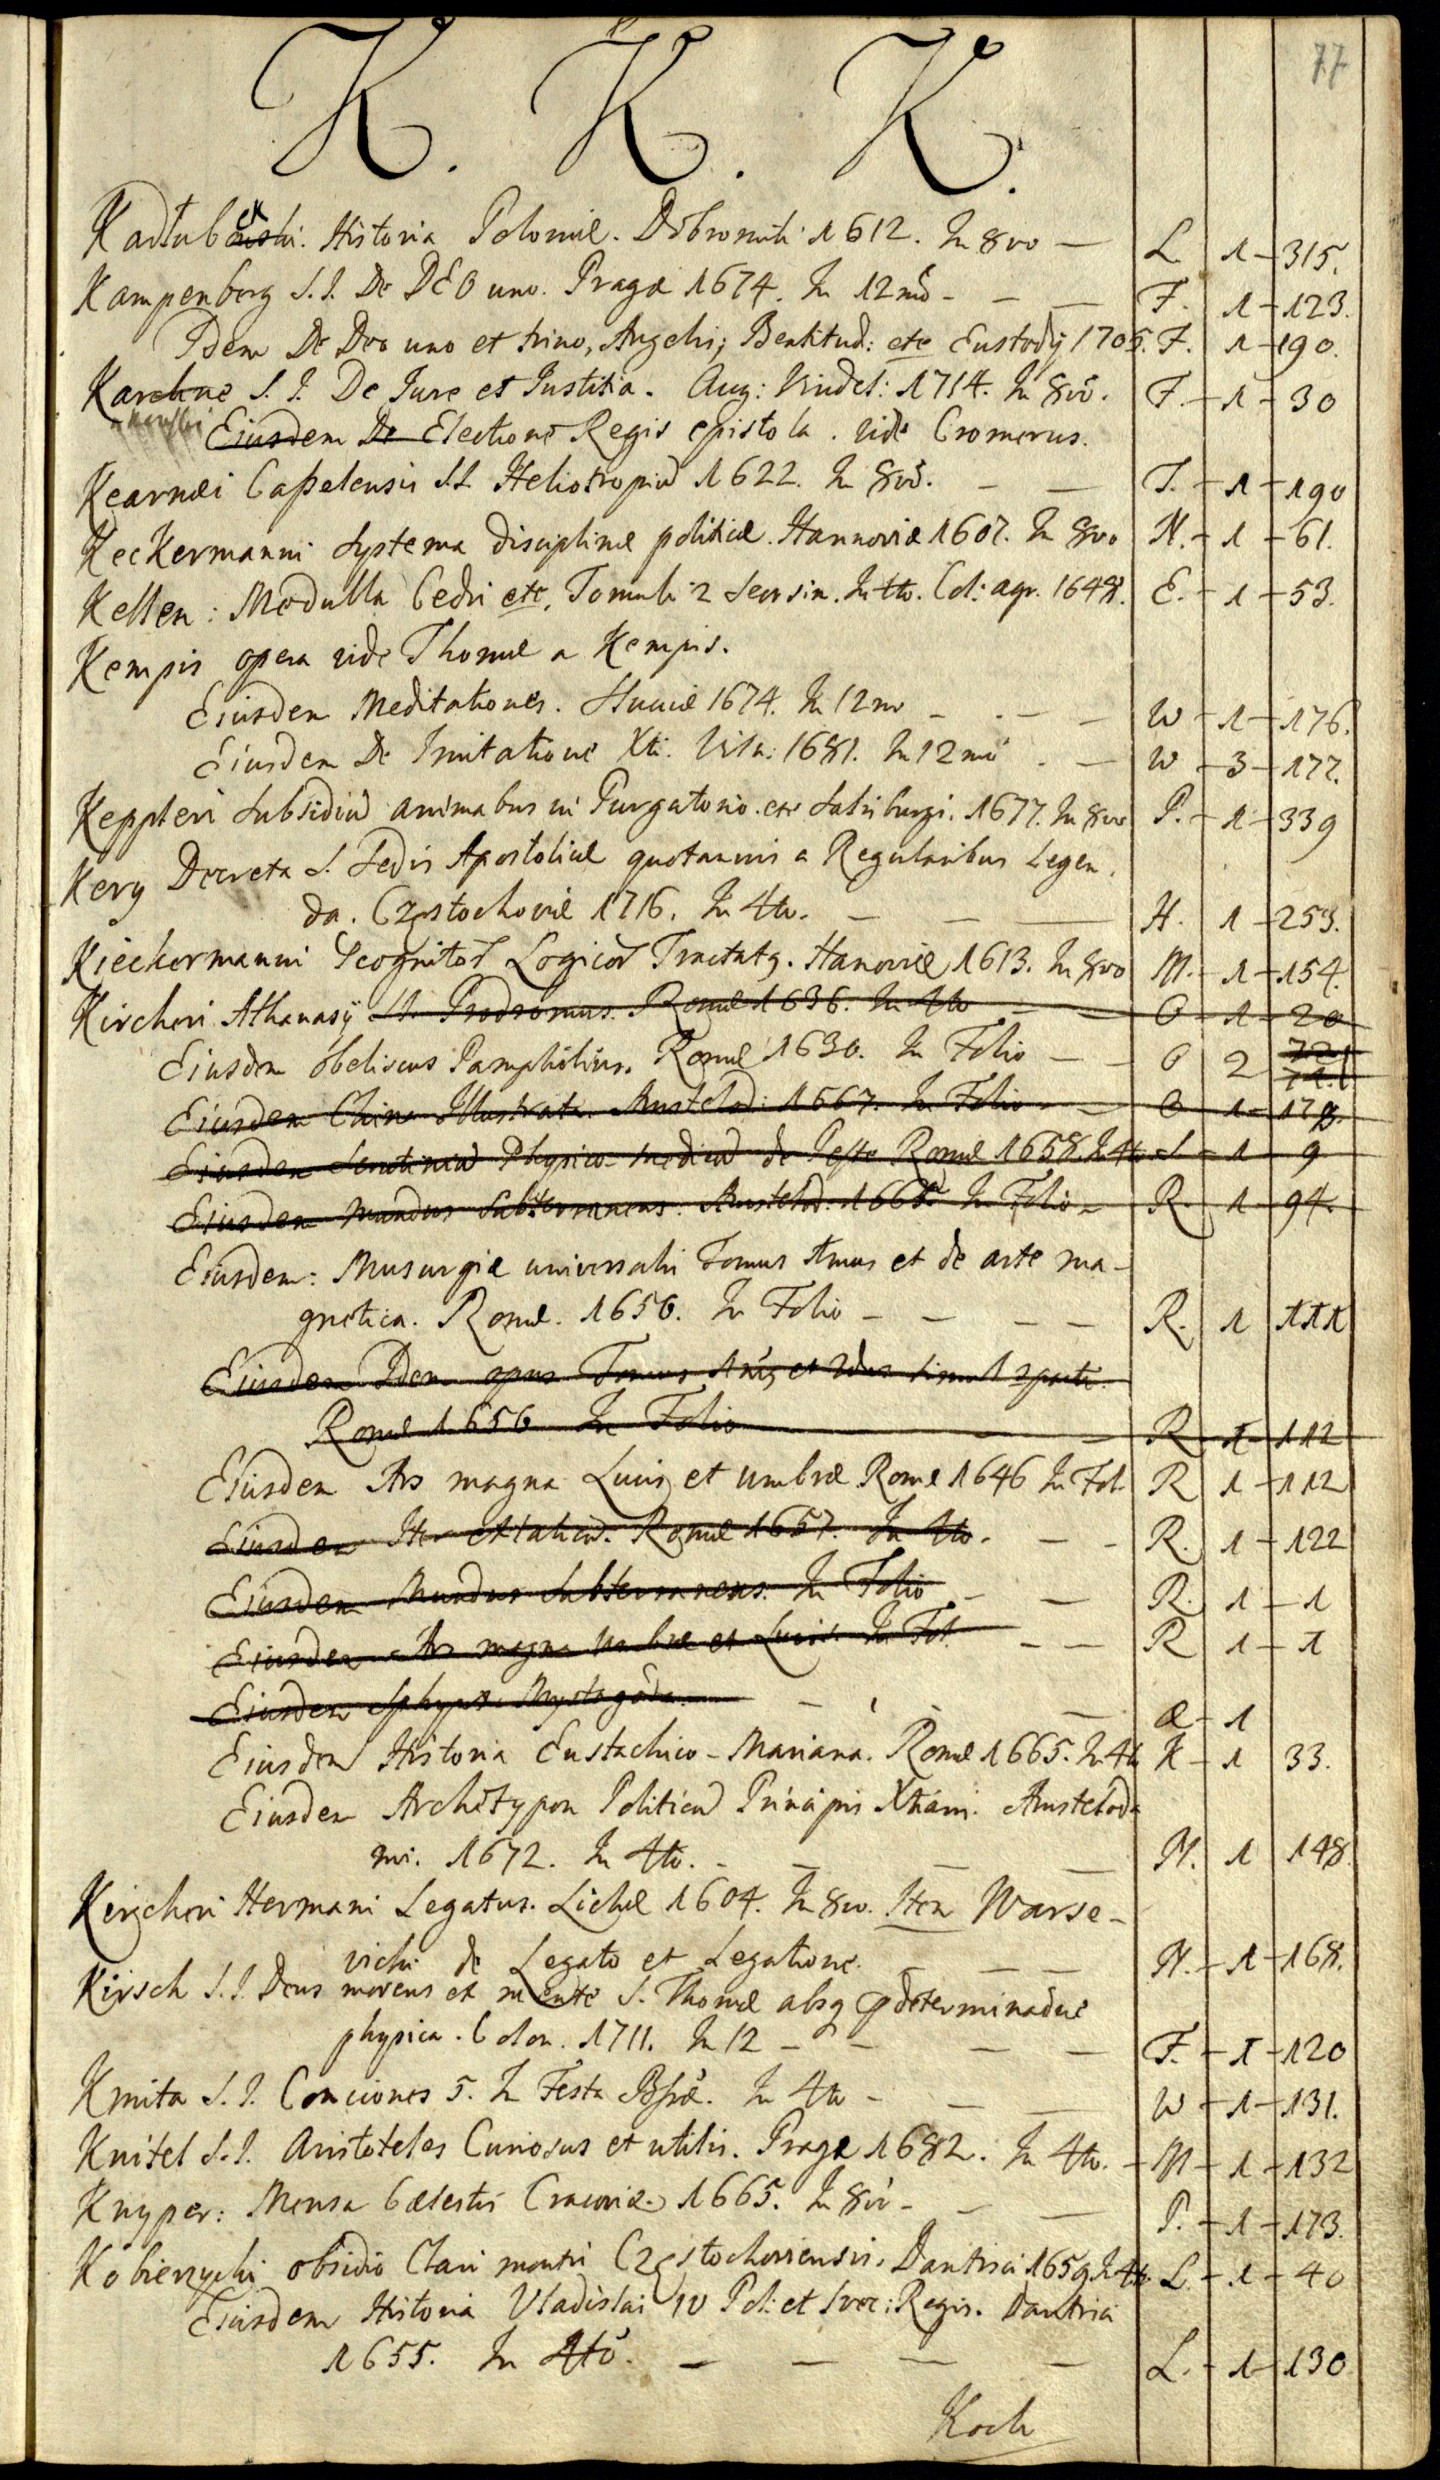 77
K. K. K.
Kadłubek Historia Poloniæ. Dobromili 1612. In 8vo — L. 1 - 315.
Kampenberg S.J. De DEO uno. Pragæ 1674. In 12mô - — — F. 1 - 123.
Idem De Deo uno et trino, Angelis, Beatitud: etc Eustadij 1705. F. 1 - 190.
Karchne S.J. De Jure et Justitia. Aug: Vindel: 1714. In 8vô. F. - 1 - 30
Eiusdem De Electione Regis epistola. vide Cromerus.
Kearnæi Caßelensis S.J. Heliotropiū 1622. In 8vô. - — T. - 1 - 190
Keckermanni Systema disciplinæ politicæ. Hannoviæ 1607. In 8vo N. - 1 - 61.
Kellen: Medulla Cedri etc, Tomuli 2 seorsim. In 4to. Col: agr. 1648. E. - 1 - 53.
Kempis opera vide Thomæ a Kempis.
Eiusdem Meditationes. 1674. In 12mo - - — W - 1 - 176.
Eiusdem De Imitatione Xti. Viln: 1681. In 12mô - — W - 3 - 177.
Keppleri Subsidiū animabus in Purgatorio. etc Salisburgi. 1677. In 8vo P. - 1 - 339
Kery Decreta S. Sedis Apostolicæ quotannis a Regularibus Legen,
da. Częstochoviæ 1716. In 4to. — — — H. 1 - 253.
Kieckermanni Tractatq. Hanoviæ 1613. In 8vo M. - 1 - 154.
Kircheri Athanasÿ S.J. Prodromus. Romæ 1636. In 4to - — O - 1 - 20
Eiusdem Obeliscus Pamphilius. Romæ 1630. In Folio — - O 2 72
71.
Eiusdem China Illustrata. Amstelod: 1667. In Folio - — O - 1 - 178.
Eiusdem Scrutiniū Physico-medicū de Peste Romæ 1658. In 4to S - 1 - 9
Eiusdem Mundus Subterraneus. Amstelod: 1665. In Folio - R. 1 - 94.
Eiusdem: Musurgiæ universalis Tomus 1mus et de arte ma-
gnetica. Romæ. 1650. In Folio - — - — R. 1 111
Eiusdem Idem opus Tomus 1mq et 2dus simul 2parte.
Romæ 1650 In Folio — R - 1 - 112
Eiusdem Ars magna Lucis et umbræ Romæ 1646 In Fol. R 1 - 112
Eiusdem Iter extaticū. Romæ 1657. In 4to. — — - R. 1 - 122
Eiusdem Mundus Subterraneus. In Folio - — R. 1 - 1
Eiusdem Ars magna Umbræ et Lucis. In Fol. - — R 1 - 1
Eiusdem Sphynx Mystagoga. — - — Æ - 1
Eiusdem Historia Eustachico-Mariana. Romæ 1665. In 4to K - 1 33.
Eiusdem Archetypon Politicū Principis Xtiani. Amsteloda
mi. 1672. In 4to. - — — — N. 1 148.
Kircheri Hermani Legatus. Lichæ 1604. In 8vo. Item Warse-
vichi de Legato et Legatione. - — — N. - 1 - 168.
Kirsch S.J. Deus movens et mente S. Thomæ absq pdeterminaõne
physica. Colon. 1711. In 12 - — — — F. - 1 - 120
Kmita S.J. Conciones 5. In Festa In 4to - — — W - 1 - 131.
Knitel S.J. Aristoteles Curiosus et utilis. Pragæ 1682. In 4to. - M - 1 - 132
Knyper: Mensa Cælestis Cracoviæ. 1665. In 8vô - — — P. - 1 - 173.
Kobierzycki obsidio Clari montis Częstochoviensis. Dantisci 1659 In 4to L - 1 - 40
Eiusdem Historia Vladislai IV Pol: et Svec: Regis. Dantisci
1655. In 4tô. — — — — L. - 1 - 130
Koch